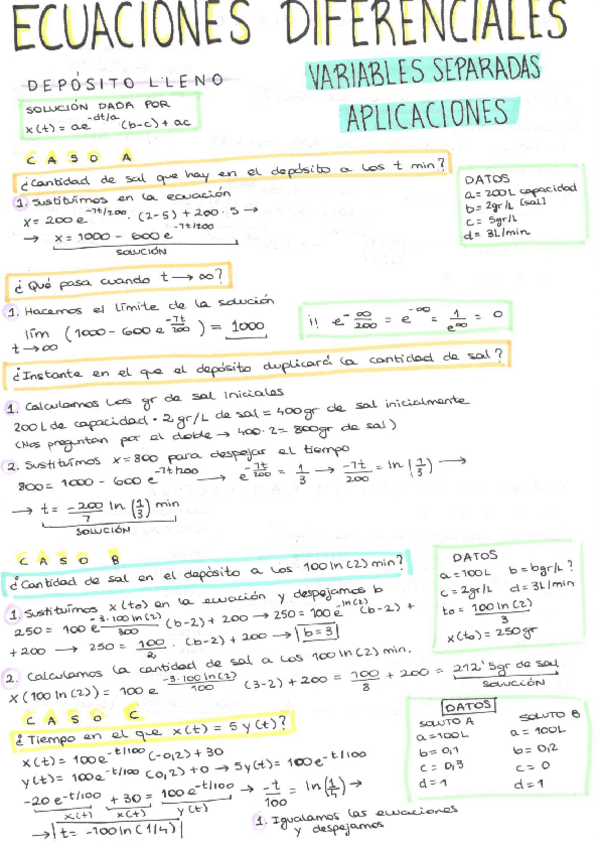 ECUACIONES DIFERENCIALES
DEPÓSITO LLENO
VARIABLES SEPARADAS
APLICACIONES
SOLUCIÓN DADA POR
x(t) = ae^-dt/a (b-c) + ac
CASO A
¿Cantidad de sal que hay en el depósito a los t min?
DATOS
a = 200L capacidad
b = 2gr/L [sal]
c = 5gr/L
d = 3L/min
1. Sustituimos en la ecuación
x = 200 e^-7t/200 · (2-5) + 200 · 5 →
→ x = 1000 - 600 e^-7t/200
SOLUCIÓN
¿Qué pasa cuando t → ∞?
1. Hacemos el límite de la solución
lím t→∞ (1000 - 600 e^-7t/200) = 1000
¡! e^-∞/200 = e^-∞ = 1/e^∞ = 0
¿Instante en el que el depósito duplicará la cantidad de sal?
1. Calculamos los gr de sal iniciales
200 L de capacidad · 2 gr/L de sal = 400 gr de sal inicialmente
(Nos preguntan por el doble → 400 · 2 = 800gr de sal)
2. Sustituimos x = 800 para despejar el tiempo
800 = 1000 - 600 e^-7t/200 → e^-7t/200 = 1/3 → -7t/200 = ln(1/3) →
→ t = -200/7 ln(1/3) min
SOLUCIÓN
CASO B
¿Cantidad de sal en el depósito a los 100 ln(2) min?
DATOS
a = 100L b = bgr/L?
c = 2gr/L d = 3L/min
to = 100 ln(2)/3
x(to) = 250gr
1. Sustituimos x(to) en la ecuación y despejamos b
250 = 100 e^-3·100 ln(2)/300 (b-2) + 200 → 250 = 100 e^-ln(2) (b-2) +
+ 200 → 250 = 100/2 · (b-2) + 200 → b = 3
2. Calculamos la cantidad de sal a los 100 ln(2) min.
x(100 ln(2)) = 100 e^-3·100 ln(2)/100 (3-2) + 200 = 100/8 + 200 = 212'5gr de sal
SOLUCIÓN
CASO C
¿Tiempo en el que x(t) = 5y(t)?
DATOS
SOLUTO A SOLUTO B
a = 100L a = 100L
b = 0,1 b = 0,2
c = 0,3 c = 0
d = 1 d = 1
x(t) = 100e^-t/100 (-0,2) + 30
y(t) = 100e^-t/100 (0,2) + 0 → 5y(t) = 100e^-t/100
-20e^-t/100 + 30 = 100e^-t/100 → -t/100 = ln(1/4) →
x(t) x(t) y(t)
→ t = -100 ln(1/4)
1. Igualamos las ecuaciones
y despejamos